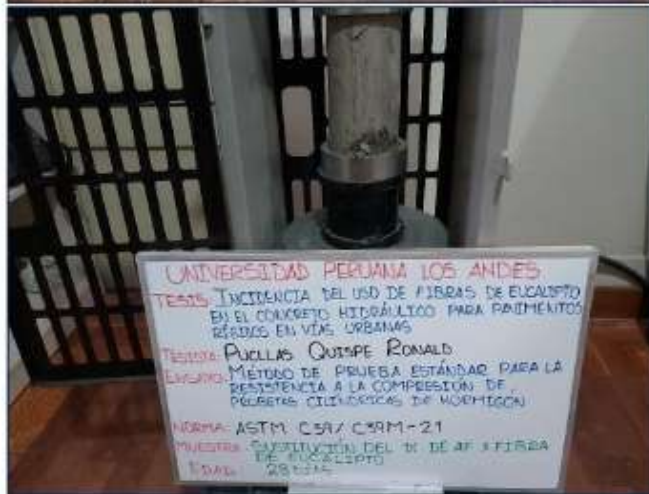 UNIVERSIDAD PERUANA LOS ANDES
TESIS: INCIDENCIA DEL USO DE FIBRAS DE EUCALIPTO
EN EL CONCRETO HIDRÁULICO PARA PAVIMENTOS
RÍGIDOS EN VÍAS URBANAS
TESISTA: PUCLLAS QUISPE RONALD
ENSAYO: MÉTODO DE PRUEBA ESTÁNDAR PARA LA
RESISTENCIA A LA COMPRESIÓN DE
PROBETAS CILÍNDRICAS DE HORMIGÓN
NORMA: ASTM C39/C39M-21
MUESTRA: SUSTITUCIÓN DEL DE AF X FIBRA
DE EUCALIPTO
EDAD: 28 DÍAS